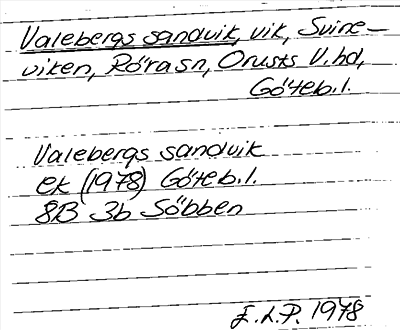 Valebergs sandvik, vik, Svine-
viken, Röra sn, Orusts V. hd,
Göteb. l.
Valebergs sandvik
ek (1978) Göteb. l.
8B 3b Söbben
E.L.P. 1978